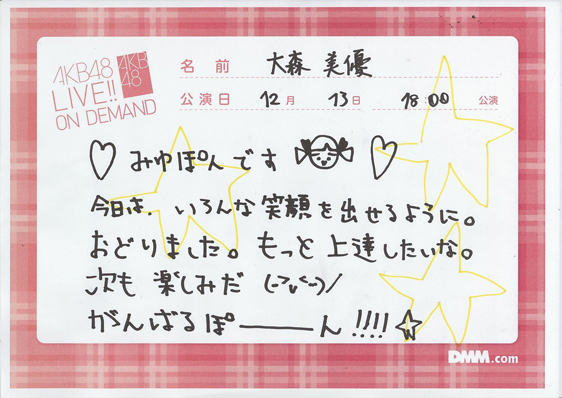 AKB48
LIVE!!
ON DEMAND
AKB
48
名前 大森 美優
公演日 12月 13日 18:00 公演
♡ みゆぽんです ♡
今日は、いろんな笑顔を出せるように。
おどりました。もっと上達したいな。
次も 楽しみだ (ーっ´ー)/
がんばるぽ―――ん!!!!☆
DMM.com